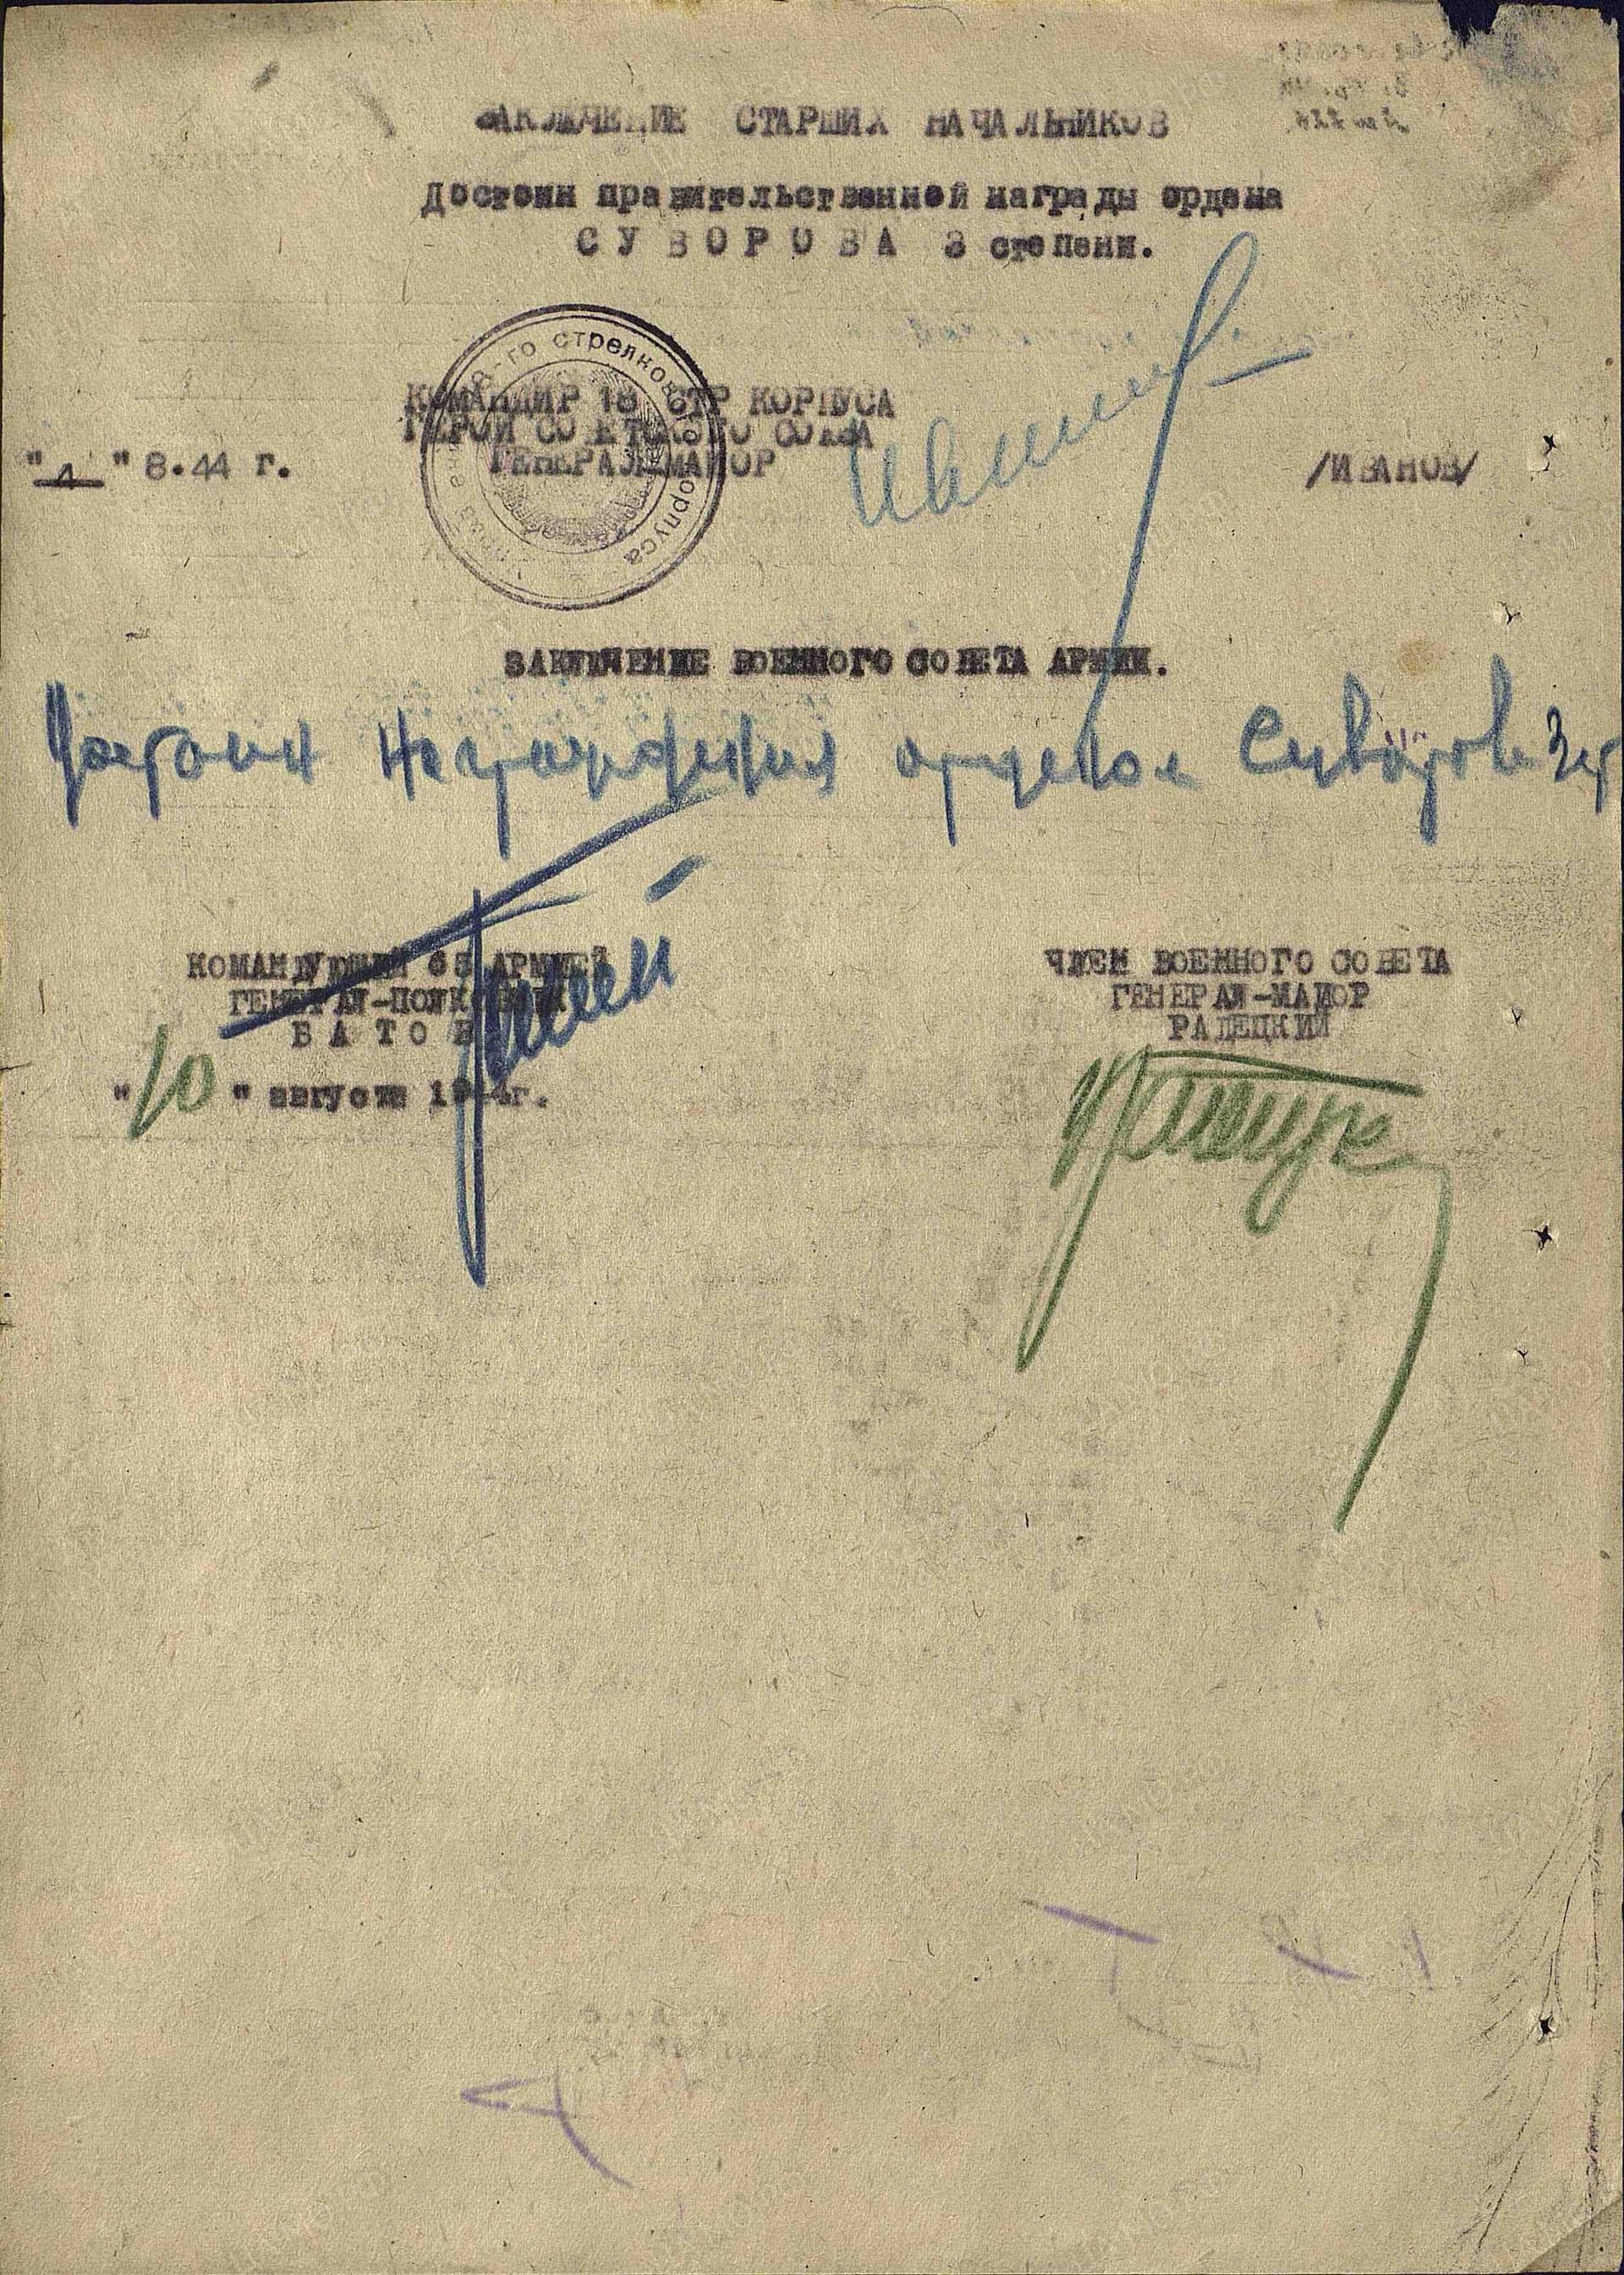 ЗАКЛЮЧЕНИЕ СТАРШИХ НАЧАЛЬНИКОВ
Достоин правительственной награды ордена
СУВОРОВА 3 степени.
КОМАНДИР 18 СТР КОРПУСА
ГЕРОЙ СОВЕТСКОГО СОЮЗА
"1" 8.44 г. ГЕНЕРАЛ-МАЙОР /ИВАНОВ/
-го стрелкового корпуса
ЗАКЛЮЧЕНИЕ ВОЕННОГО СОВЕТА АРМИИ.
Достоин награждения орденом Суворова 3 ст
КОМАНДУЮЩИЙ 65 АРМИЕЙ
ГЕНЕРАЛ-ПОЛКОВНИК
БАТОВ
"10" августа 1944г.
ЧЛЕН ВОЕННОГО СОВЕТА
ГЕНЕРАЛ-МАЙОР
РАДЕЦКИЙ